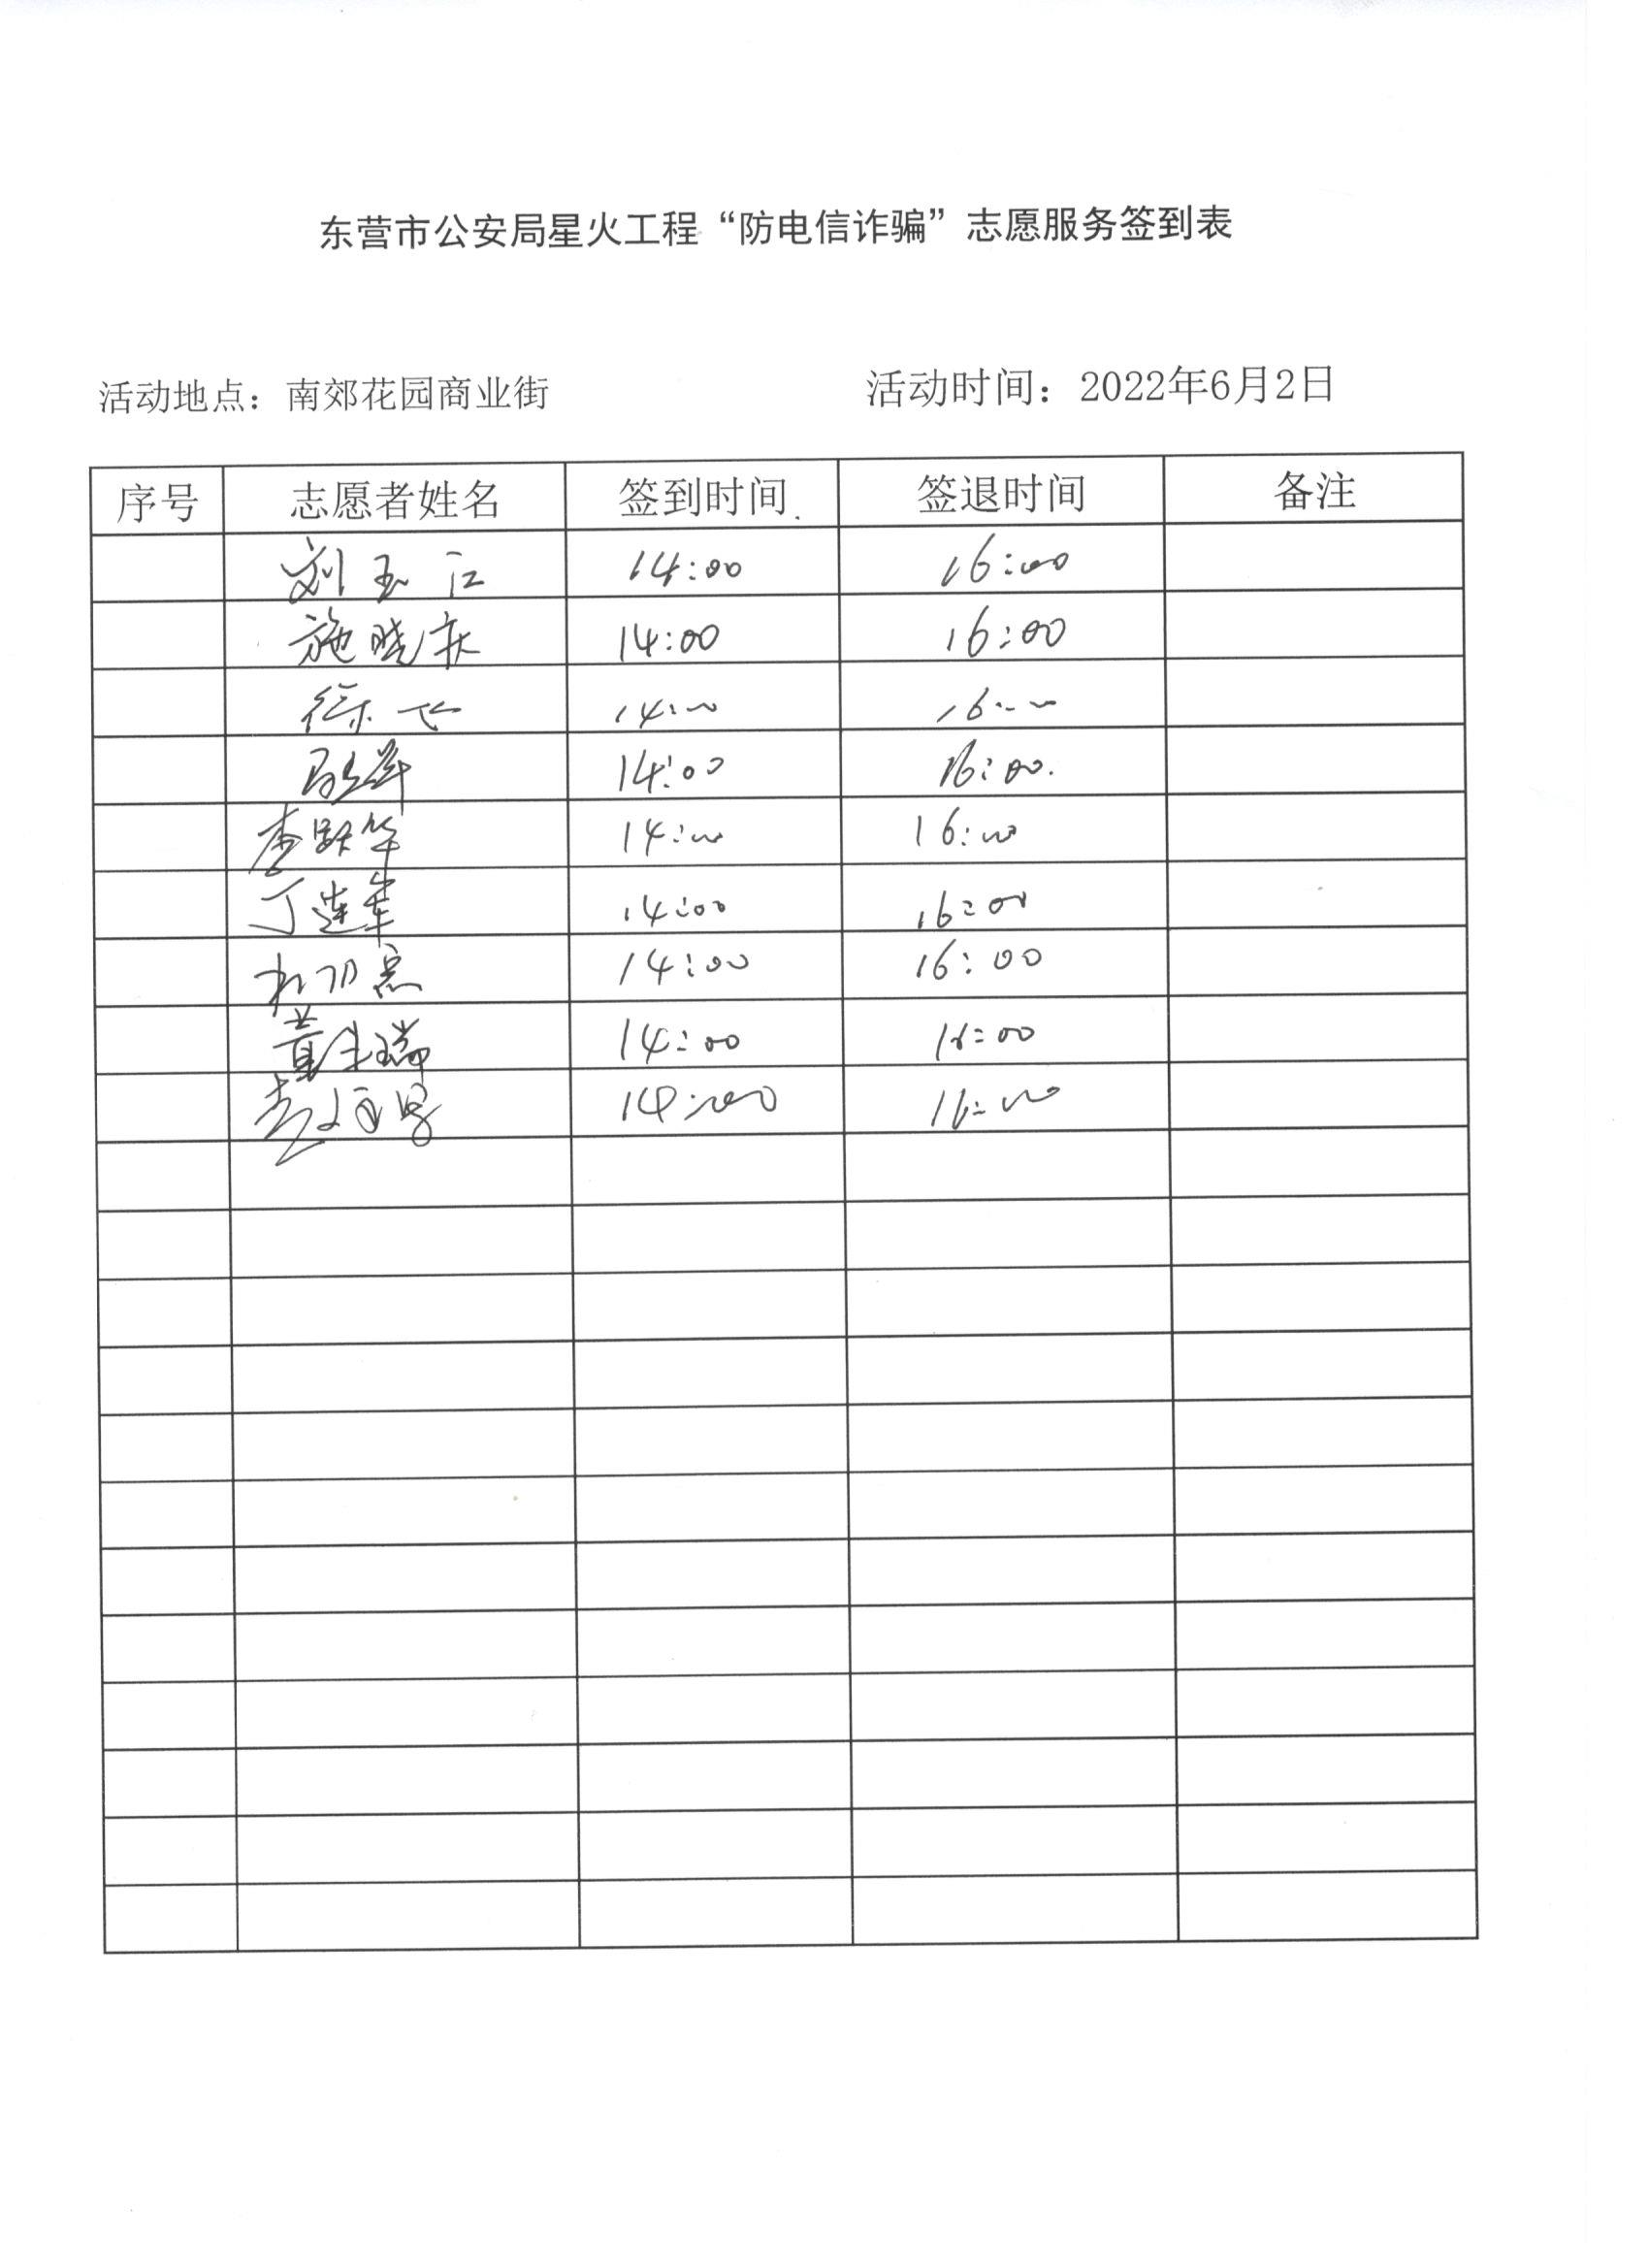 东营市公安局星火工程“防电信诈骗”志愿服务签到表
活动地点：南郊花园商业街 活动时间：2022年6月2日
序号 志愿者姓名 签到时间 签退时间 备注
刘玉江 14:00 16:00
施晓庆 14:00 16:00
徐飞 14:00 16:00
14:00 16:00.
李跃华 14:00 16:00
丁连军 14:00 16:00
14:00 16:00
黄生瑞 14:00 16:00
14:00 16:00